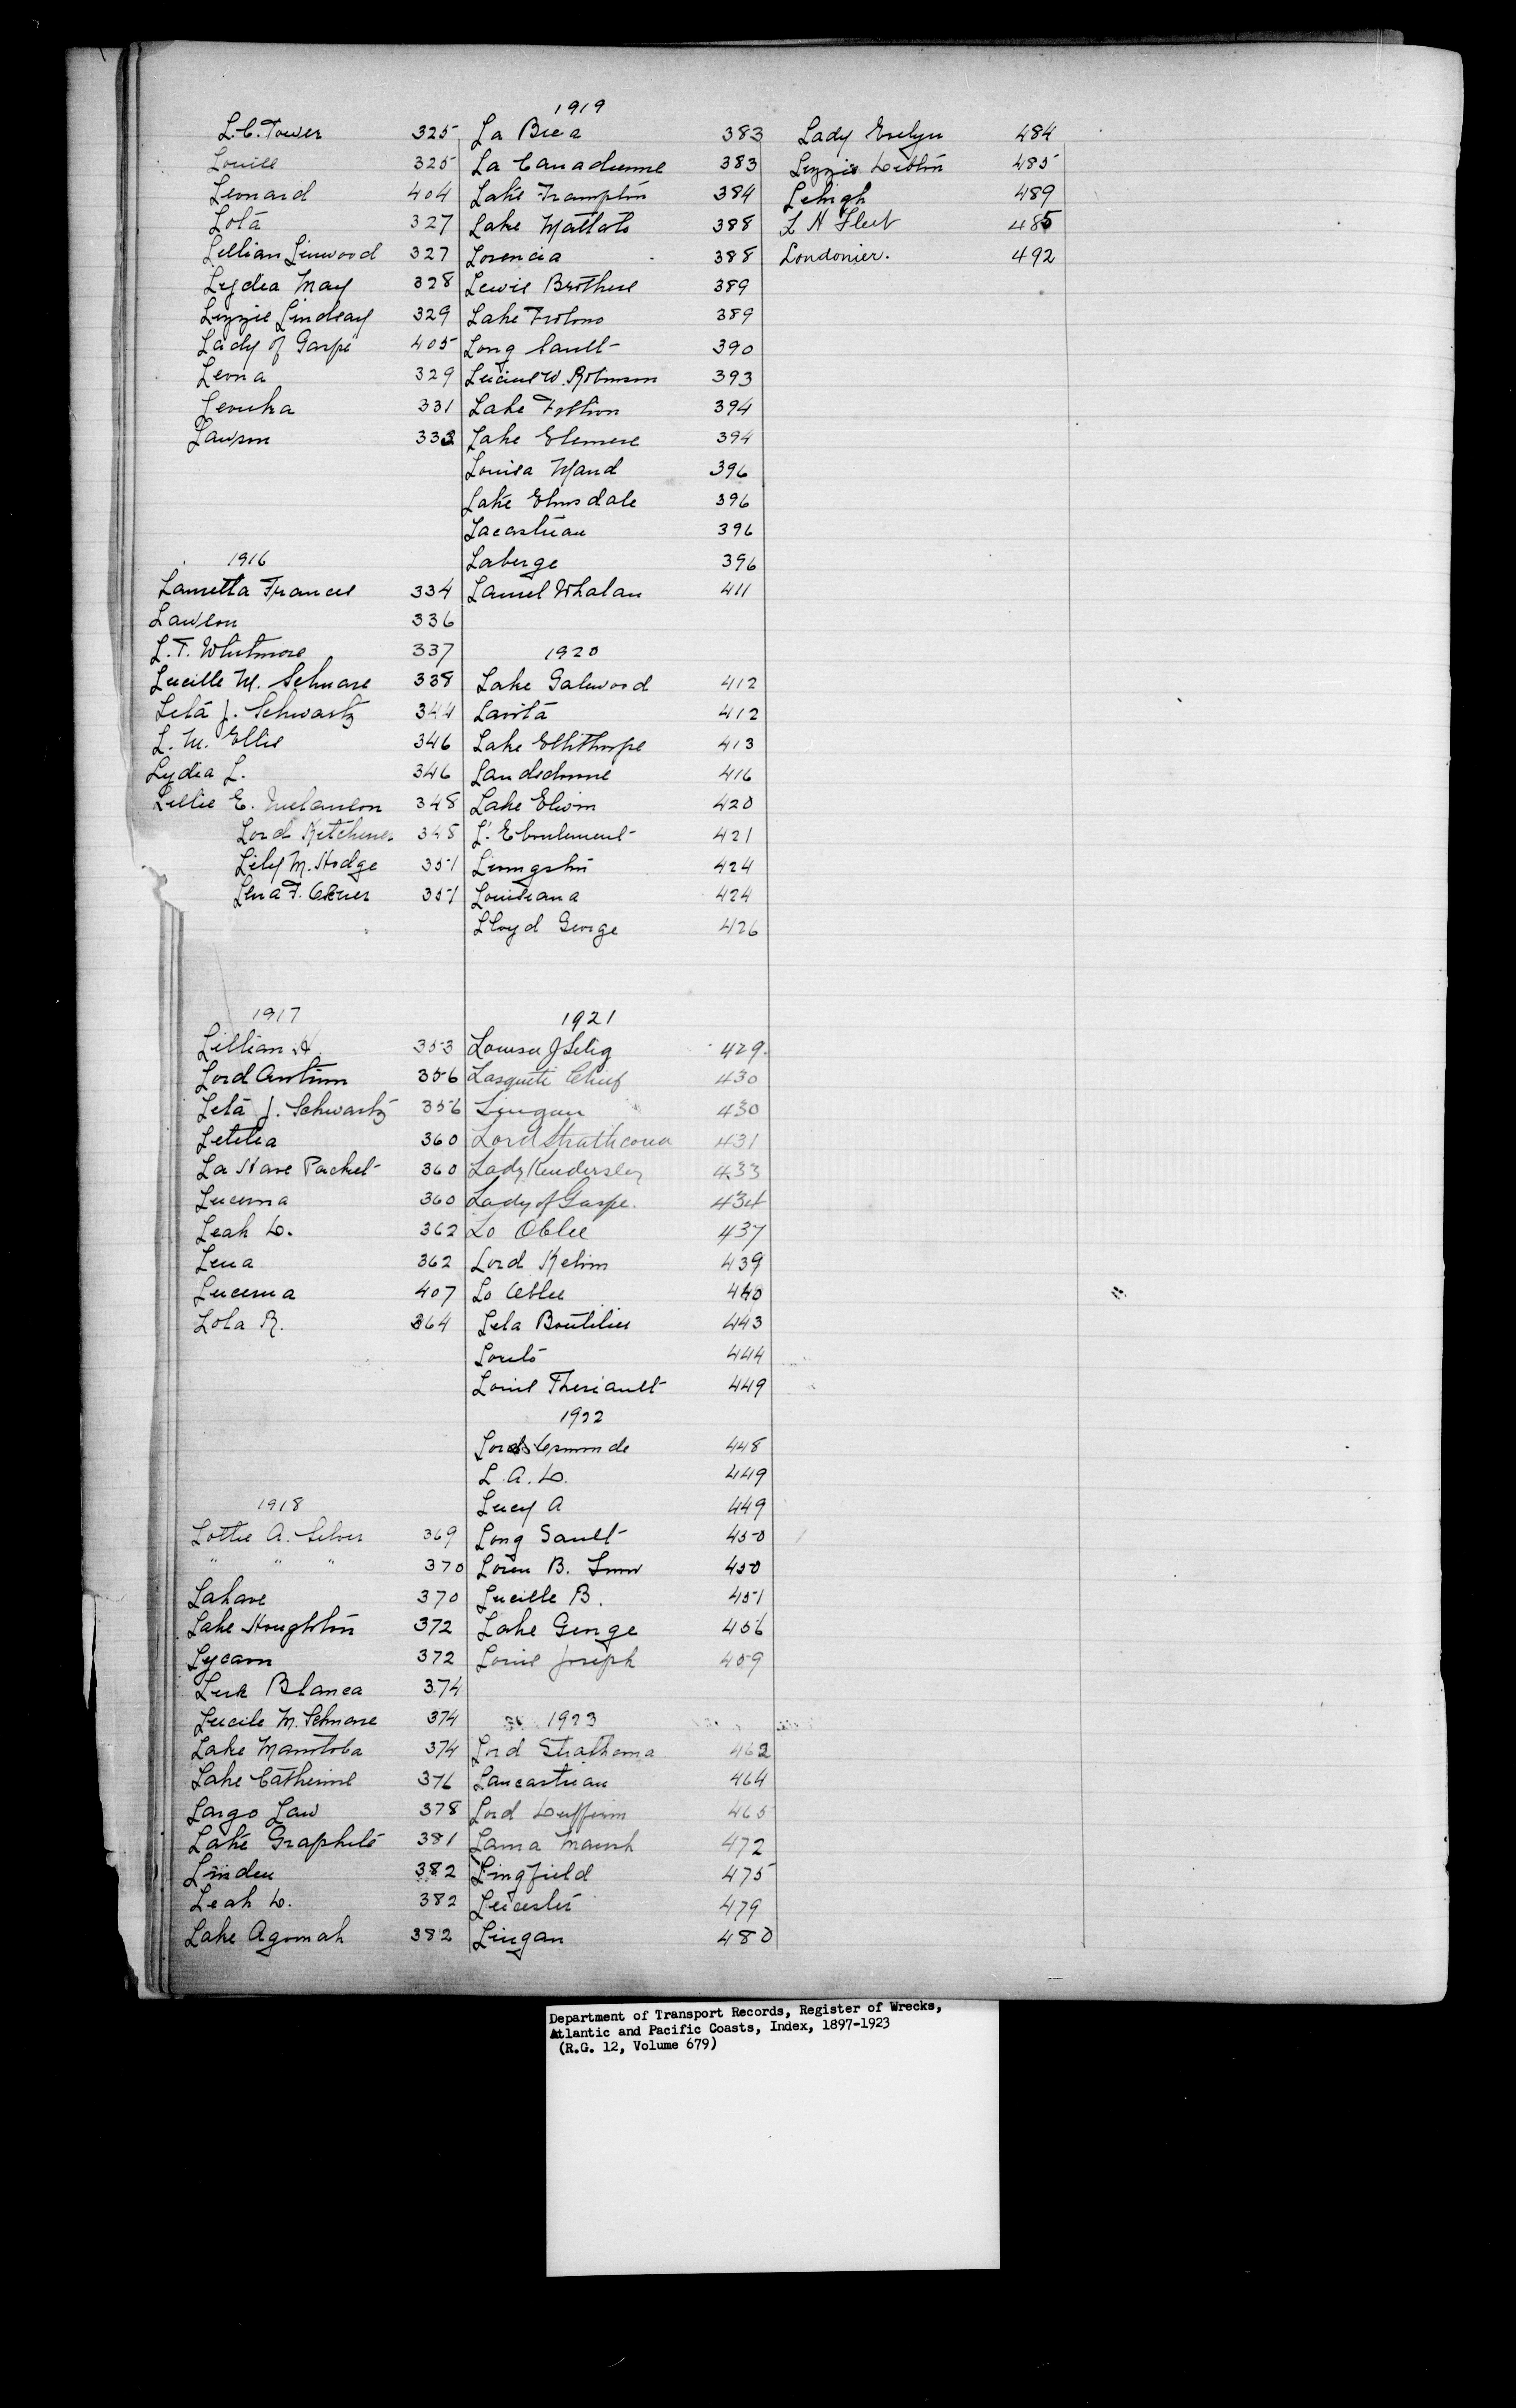 L.C. Tower 325
Louise 325
Leonard 404
Lota 327
Lillian Linwood 327
Lydia May 328
Lizzie Lindsay 329
Lady of Gaspe 405
Leona 329
331
Lawson 332
1916
Lauretta Frances 334
Lawson 336
L.T. Whitmore 337
Lucille M. Schnare 338
Leta J. Schwartz 344
L. M. Ellis 346
Lydia L. 346
Lillie E. Melanson 348
Lord Kitchener 348
Lily M. Hodge 351
Lena F. Oxner 351
1917
Lillian H. 353
Lord Antrim 356
Leta J. Schwartz 356
Letitia 360
La Have Packet 360
Lucerna 360
Leah D. 362
Lena 362
Lucerna 407
Lola R. 364
1918
Lottie A. Silver 369
" " " 370
Lahave 370
Lake Houghton 372
Lycaon 372
Luz Blanca 374
Lucile M. Schnare 374
Lake Manitoba 374
Lake Catherine 376
Largo Law 378
Lake Graphite 381
Linden 382
Leah D. 382
Lake Agomah 382
1919
La Brea 383
La Canadienne 383
Lake Frampton 384
Lake Mattato 388
Lorencia 388
Lewis Brothers 389
Lake Frolono 389
Long Sault 390
Lucius W. Robinson 393
Lake Fellion 394
Lake Elsmere 394
Louisa Maud 396
Lake Elmsdale 396
Lacastrian 396
Laberge 396
Laurel Whalan 411
1920
Lake Galewood 412
Lavita 412
Lake Ellithorpe 413
Landsdowne 416
Lake Elwin 420
L'. Eboulement 421
Livingston 424
Louisiana 424
Lloyd George 426
1921
Louisa J Selig 429.
Lasqueti Chief 430
Lingan 430
Lord Strathcona 431
Lady Kindersley 433
Lady of Gaspe. 434
Lo Oblee 437
Lord Kelvin 439
Lo Oblee 440
Lela Boutilier 443
Loreto 444
Louis Theriault 449
1922
448
L. A. D. 449
Lucy A 449
Long Sault 450
Loren B. Snow 450
Lucille B. 451
Lake George 456
Louis Joseph 459
1923
Lord Strathcona 462
Lancastrian 464
Lord Dufferin 465
Laura Marsh 472
Lingfield 475
Leicester 479
Lingan 480
Lady Evelyn 484
Lizzie Dublin 485
Lehigh 489
L N Fleet 485
Londonier. 492
Department of Transport Records, Register of Wrecks,
Atlantic and Pacific Coasts, Index, 1897-1923
(R.G. 12, Volume 679)